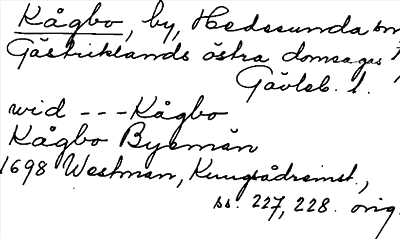 Kågbo, by, Hedesunda sn
Gästriklands östra domsagas
Gävleb. l.
wid --- Kågbo
Kågbo Byemän
1698 Westman, Kungsådreinst.,
ss. 227, 228. orig.